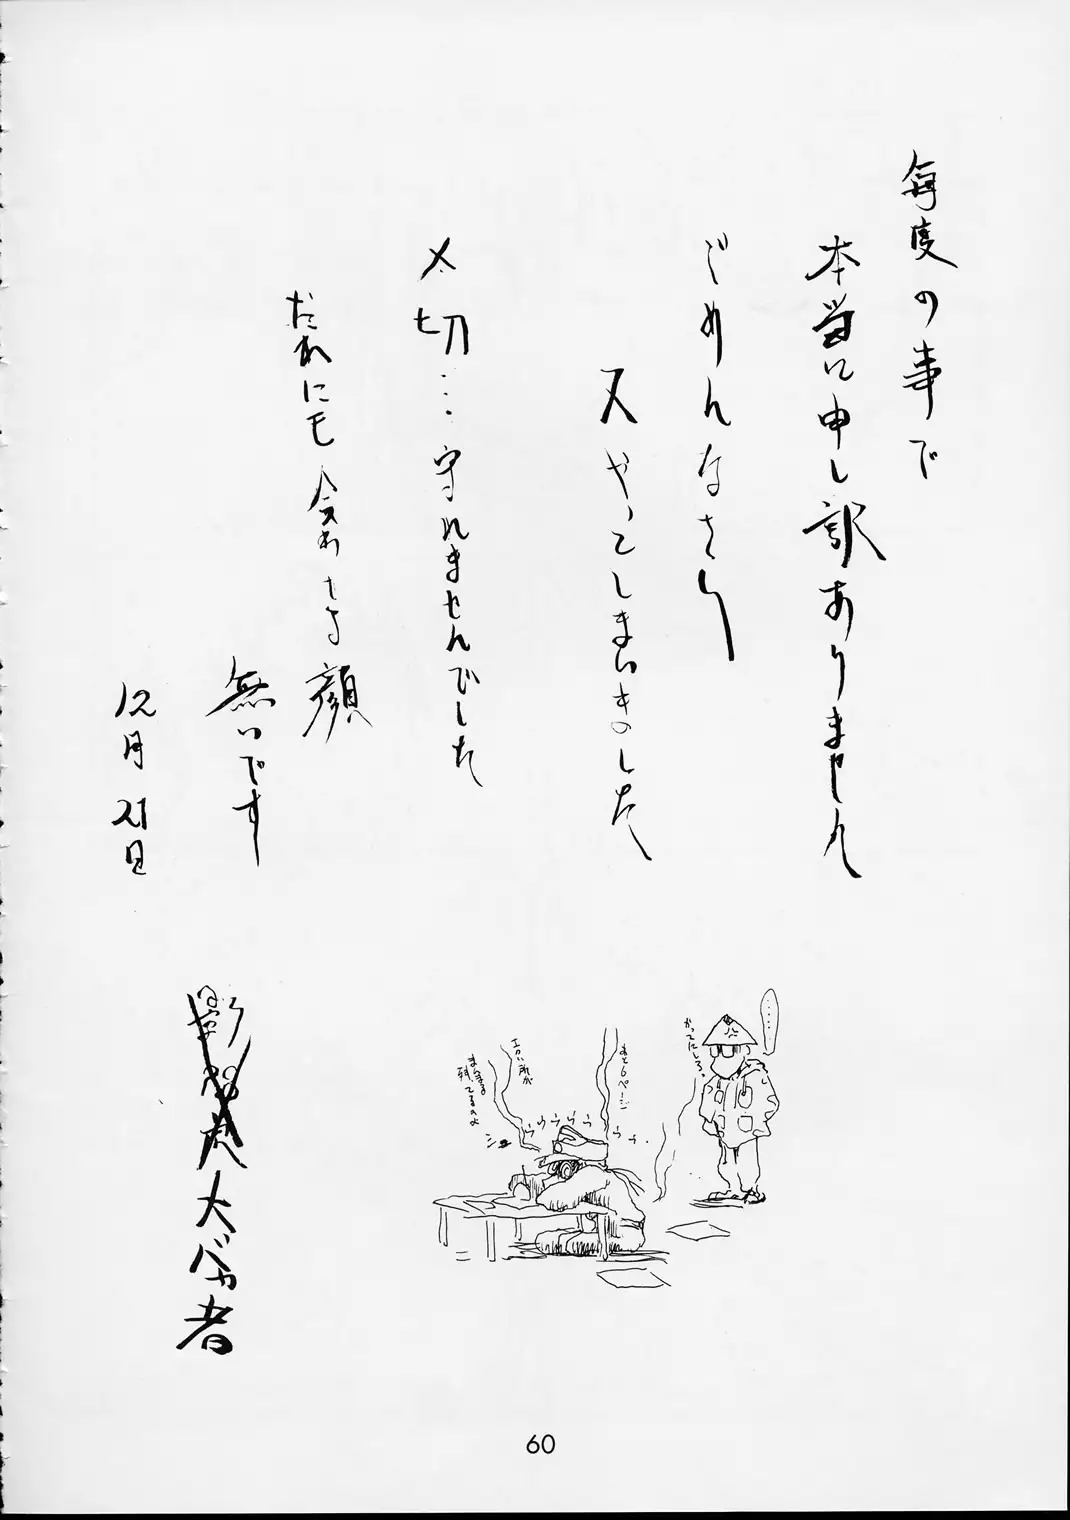 毎度の事で
本当に申し訳ありません
ごめんなさい
又やってしまいましした
〆切…守れませんでした
だれにも会わせる顔
無いです
12月21日
大バカ者
……
かってにしろ。
あと6ページ
エロい所が
まんま
残ってるのよ
ウウウウウウウ
60